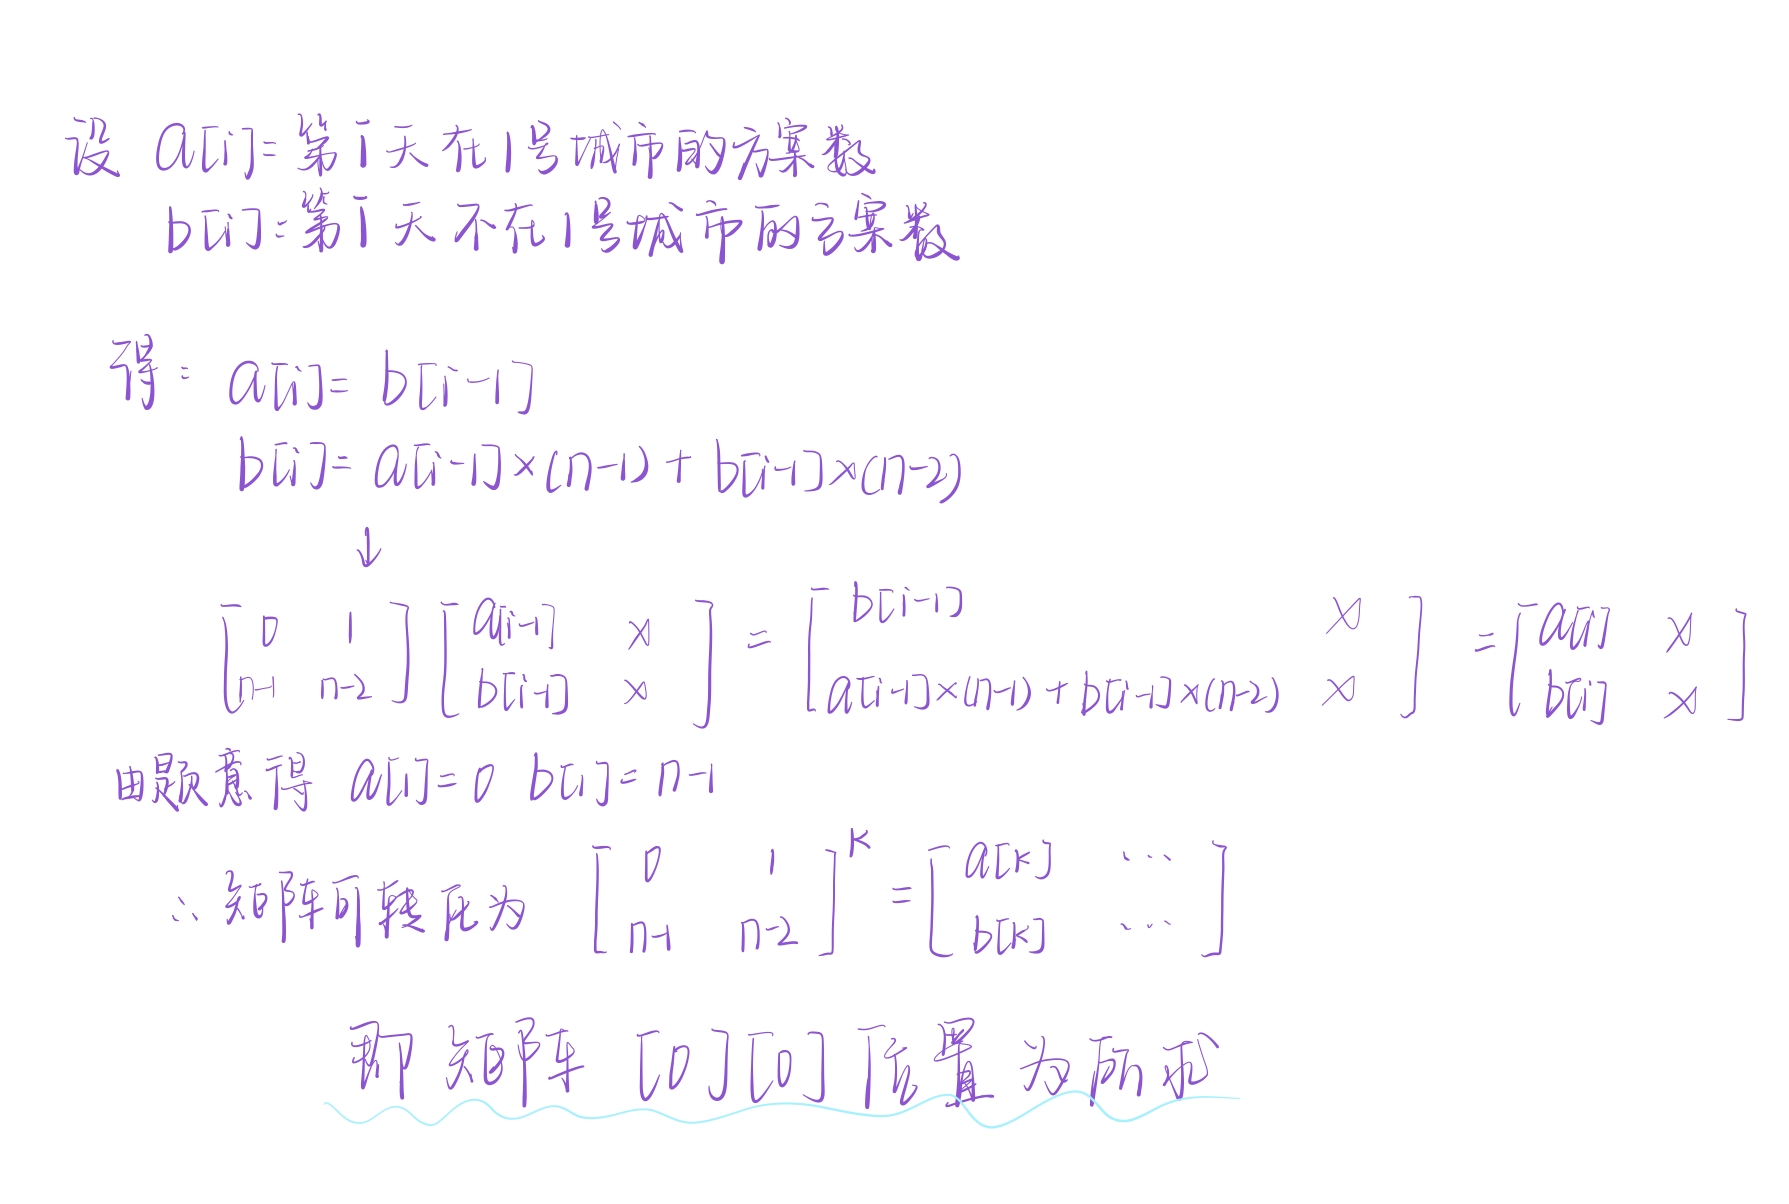 设 a[i]=第i天在1号城市的方案数
b[i]=第i天不在1号城市的方案数
得: a[i]= b[i-1]
b[i]= a[i-1]×(n-1) + b[i-1]×(n-2)
↓
[0 1 [a[i-1] x = [b[i-1] x = [a[i] x
n-1 n-2] b[i-1] x] a[i-1]×(n-1) + b[i-1]×(n-2) x] b[i] x]
由题意得 a[1]=0 b[1]=n-1
∴ 矩阵可转化为 [0 1 n-1 n-2]^K = [a[K] ... b[K] ...]
即 矩阵 [0][0] 位置为所求